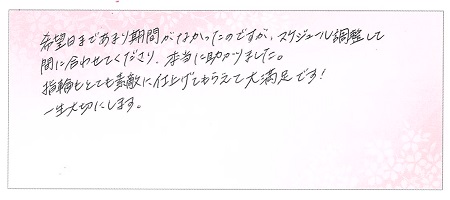 希望日まであまり期間がなかったのですが、スケジュール調整して
間に合わせてくださり、本当に助かりました。
指輪もとても素敵に仕上げてもらえて大満足です!
一生大切にします。